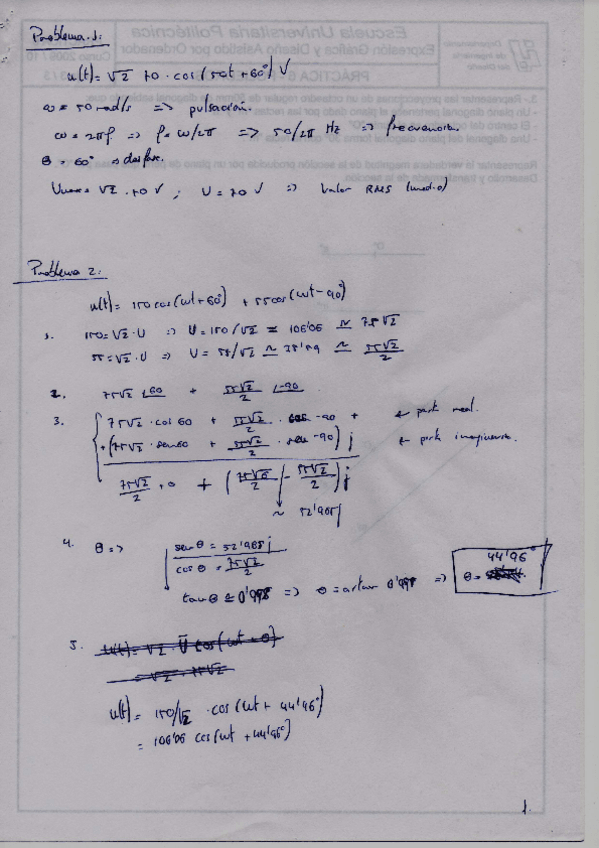 Problema 1:
u(t) = √2 70 · cos(50t + 60°) V
ω = 50 rad/s => pulsación.
ω = 2πf => f = ω/2π => 50/2π Hz => frecuencia.
θ = 60° => desfase.
Umax = √2 · 70 V ; U = 70 V => Valor RMS (medio)
Problema 2:
u(t) = 150 cos(ωt + 60°) + 55 cos(ωt − 90°)
1. 150 = √2 · U => U = 150/√2 ≃ 106'06 ≃ 75√2
55 = √2 · U => U = 55/√2 ≃ 38'89 ≃ 55√2/2
2. 75√2 ∠60 + 55√2/2 ∠-90
3. 75√2 · cos 60 + 55√2/2 · cos −90 + ← parte real.
+ (75√2 · sen 60 + 55√2/2 · sen −90) j ← parte imaginaria.
75√2/2 + 0 + (75√6/2 − 55√2/2) j
≃ 52'965 j
4. θ => sen θ = 52'965 j
cos θ = 75√2/2
tan θ ≃ 0'998 => θ = artan 0'998 => θ = 44'96°
5. u(t) = √2 · U cos(ωt + θ)
= √2 · 75√2
u(t) = 150/√2 · cos(ωt + 44'96°)
= 106'06 cos(ωt + 44'96°)
1.